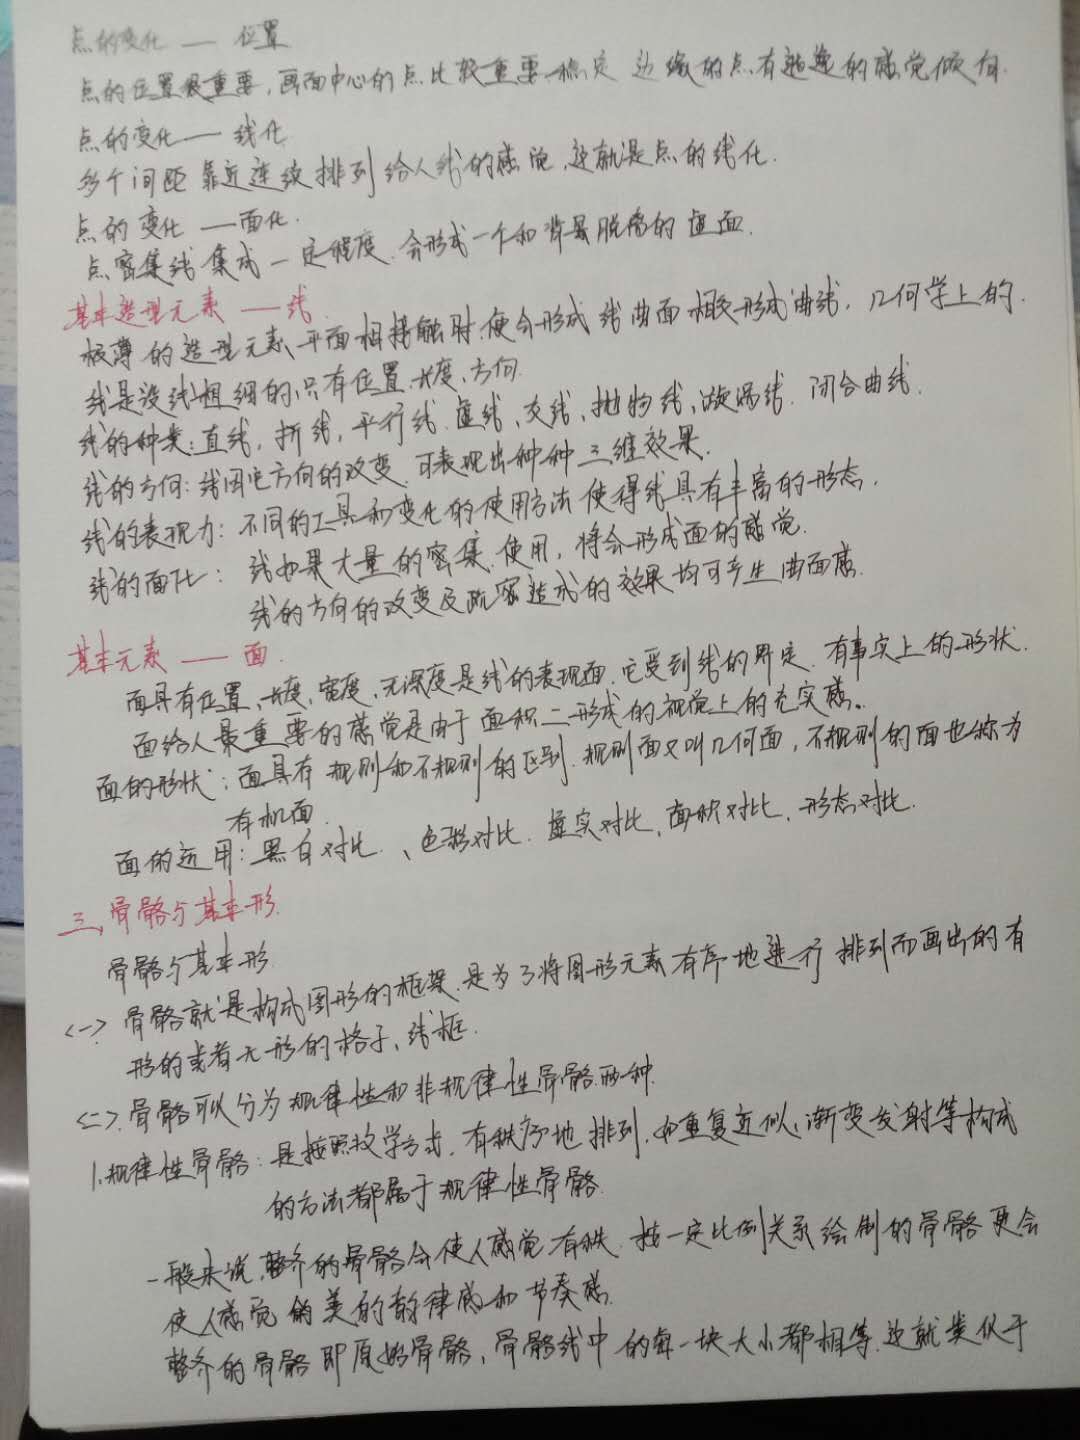 点的变化 —— 位置
点的位置很重要，画面中心的点比较重要、稳定 边缘的点有逃逸的感觉倾向.
点的变化 —— 线化
多个间距 靠近连续排列给人线的感觉,这就是点的线化.
点的变化 —— 面化.
点密集线集成一定程度.会形成一个和背景脱离的虚面.
基本造型元素 —— 线.
极薄的造型元素、平面相接触时.便会形成线曲面相交形成曲线，几何学上的.
线是没线粗细的,只有位置、长度、方向.
线的种类:直线，折线，平行线.虚线、交线、抛物线、漩涡线.闭合曲线.
线的方向:线因它方向的改变.可表现出种种三维效果.
线的表现力: 不同的工具和变化的使用方法使得线具有丰富的形态.
线的面化: 线如果大量的密集.使用，将会形成面的感觉.
线的方向的改变及疏密造成的效果均可产生曲面感.
基本元素 —— 面.
面具有位置、长度、宽度、无深度是线的表现面.它受到线的界定.有事实上的形状.
面给人最重要的感觉是由于面积二形成的视觉上的充实感。
面的形状:面具有规则和不规则的区别.规则面又叫几何面，不规则的面也称为
有机面.
面的运用:黑白对比.、色彩对比.虚实对比、面积对比、形态对比.
三、骨骼与基本形.
骨骼与基本形
<一> 骨骼就是构成图形的框架.是为了将图形元素有序地进行排列而画出的有
形的或者无形的格子、线框.
<二>.骨骼可以分为规律性和非规律性骨骼两种.
1.规律性骨骼:是按照数学方式.有秩序地排列.如重复近似、渐变发射等构成
的方法都属于规律性骨骼.
一般来说,整齐的骨骼会使人感觉有秩.按一定比例关系绘制的骨骼更会
使人感觉的美的韵律感和节奏感.
整齐的骨骼即原始骨骼，骨骼线中的每一块大小都相等.这就类似于